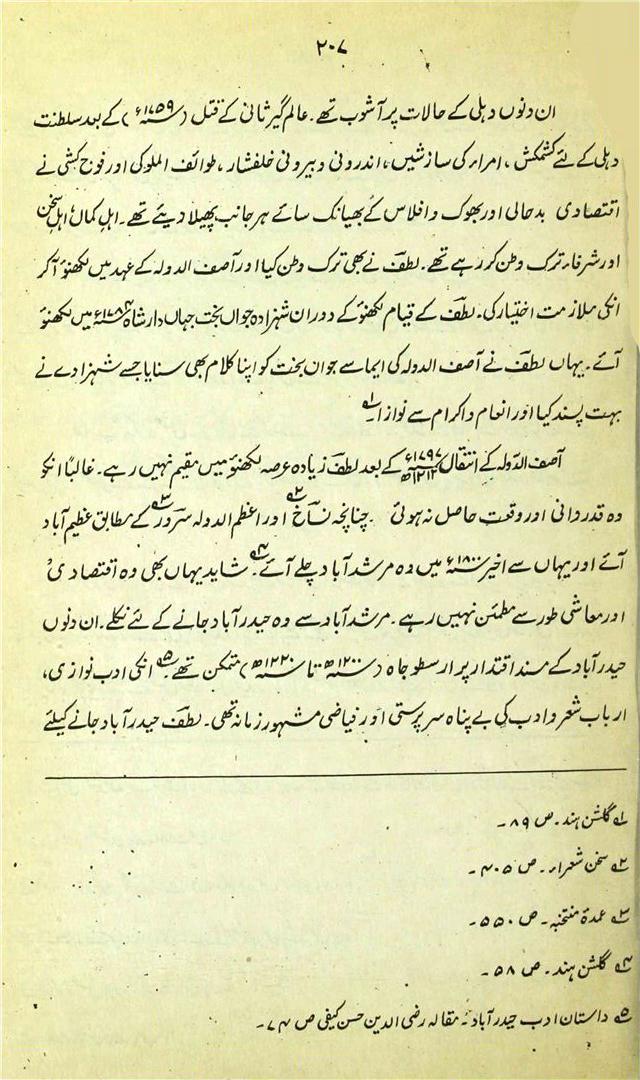 ۲۰۷
ان دنوں دہلی کے حالات پر آشوب تھے۔ عالم گیر ثانی کے قتل (۱۷۵۹ء) کے بعد سلطنت
دہلی کے لئے کشمکش، امراء کی سازشیں، اندرونی و بیرونی خلفشار، طوائف الملوکی اور فوج کشی نے
اقتصادی بدحالی اور بھوک و افلاس کے بھیانک سائے ہر جانب پھیلا دیئے تھے۔ اہل کمال، اہل سخن
اور شرفاء ترک وطن کر رہے تھے۔ لطف نے بھی ترک وطن کیا اور آصف الدولہ کے عہد میں لکھنؤ آکر
انکی ملازمت اختیار کی۔ لطف کے قیام لکھنؤ کے دوران شہزادہ جواں بخت جہاں دار شاہ ۱۷۸۴ء میں لکھنؤ
آئے۔ یہاں لطف نے آصف الدولہ کی ایما سے جوان بخت کو اپنا کلام بھی سنایا جسے شہزادے نے
بہت پسند کیا اور انعام و اکرام سے نوازا۔ ۱؎
آصف الدولہ کے انتقال ۱۷۹۷ء ۱۲۱۲ھ کے بعد لطف زیادہ عرصہ لکھنؤ میں مقیم نہیں رہے۔ غالباً انکو
وہ قدردانی اور وقعت حاصل نہ ہوئی۔ چنانچہ نساخ ۲؎ اور اعظم الدولہ سرور ۳؎ کے مطابق عظیم آباد
آئے اور یہاں سے اخیر ۱۸۰۰ء میں وہ مرشد آباد چلے آئے۔ ۴؎ شاید یہاں بھی وہ اقتصادی
اور معاشی طور سے مطمئن نہیں رہے۔ مرشد آباد سے وہ حیدرآباد جانے کے لئے نکلے۔ ان دنوں
حیدرآباد کے مسند اقتدار پر ارسطو جاہ (۱۲۰۰ھ تا ۱۲۲۰ھ) متمکن تھے۔ ۵؎ انکی ادب نوازی،
ارباب شعر و ادب کی بے پناہ سرپرستی اور فیاضی مشہور زمانہ تھی۔ لطف حیدرآباد جانے کیلئے
۱؎ گلشن ہند۔ ص ۸۹۔
۲؎ سخن شعراء۔ ص ۴۰۵۔
۳؎ عمدۂ منتخبہ۔ ص ۵۵۰۔
۴؎ گلشن ہند۔ ص ۵۸۔
۵؎ داستان ادب حیدرآباد۔ مقالہ رضی الدین حسن کیفی ص ۷۴۔